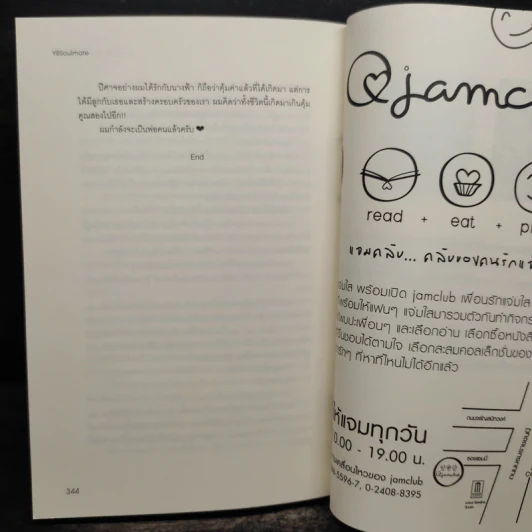 YBSoulmate
ปีศาจอย่างผมได้รักกับนางฟ้า ก็ถือว่าคุ้มค่าแล้วที่ได้เกิดมา แต่การ
ได้มีลูกกับเธอและสร้างครอบครัวของเรา ผมคิดว่าทั้งชีวิตนี้เกิดมาเกินคุ้ม
คูณสองไปอีก!!
ผมกำลังจะเป็นพ่อคนแล้วครับ ❤
End
344
jamclu
read + eat +
แจมคลับ... คลับของคนรักแจ
พร้อมเปิด jamclub เพื่อนรักแจ่มใส
พร้อมให้แฟนๆ แจ่มใสมารวมตัวกันทำกิจกร
พบปะเพื่อนๆ และเลือกอ่าน เลือกซื้อหนังสื
ชอบได้ตามใจ เลือกสะสมคอลเล็กชั่นของ
ที่หาที่ไหนไม่ได้อีกแล้ว
ให้แจมทุกวัน
0.00 - 19.00 น.
เคลื่อนไหวของ jamclub
5596-7, 0-2408-8395
ถนนจรัญสนิทวงศ์
ถนนบรมราชชนนี